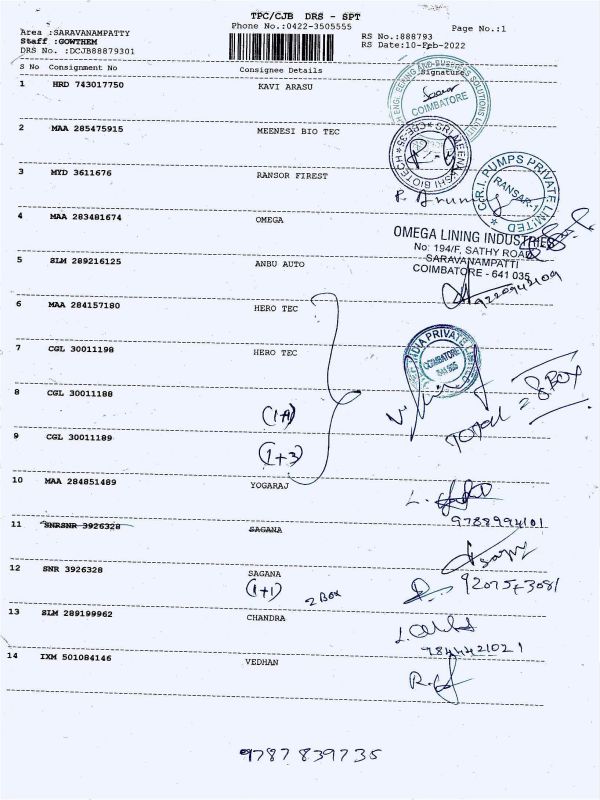 TPC/CJB DRS - SPT
Area :SARAVANAMPATTY
Phone No.:0422-3505555
Page No.:1
Staff :GOWTHEM
RS No.:888793
DRS No. :DCJB88879301
RS Date:10-Feb-2022
S No Consignment No Consignee Details Signature
1 HRD 743017750 KAVI ARASU
COIMBATORE
2 MAA 285475915 MEENESI BIO TEC
3 MYD 3611676 RANSOR FIREST
C.R.I. PUMPS PRIVATE LIMITED
RANSAR-1
4 MAA 283481674 OMEGA
OMEGA LINING INDUSTRIES
No: 194/F, SATHY ROAD
SARAVANAMPATTI
COIMBATORE - 641 035
5 SLM 289216125 ANBU AUTO
9220942109
6 MAA 284157180 HERO TEC
7 CGL 30011198 HERO TEC
INDIA PRIVATE
COIMBATORE
8 CGL 30011188
TOTAL 2 8 BOX
9 CGL 30011189
(1+3)
10 MAA 284851489 YOGARAJ
9788994101
11 SNRSNR 3926328 SAGANA
12 SNR 3926328 SAGANA
(1+1) 2 BOX
13 SLM 289199962 CHANDRA
9844421021
14 IXM 501084146 VEDHAN
9787839735